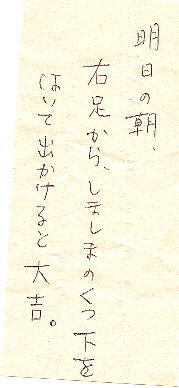 明日の朝、
右足から、しましまのくつ下を
はいて出かけると大吉。